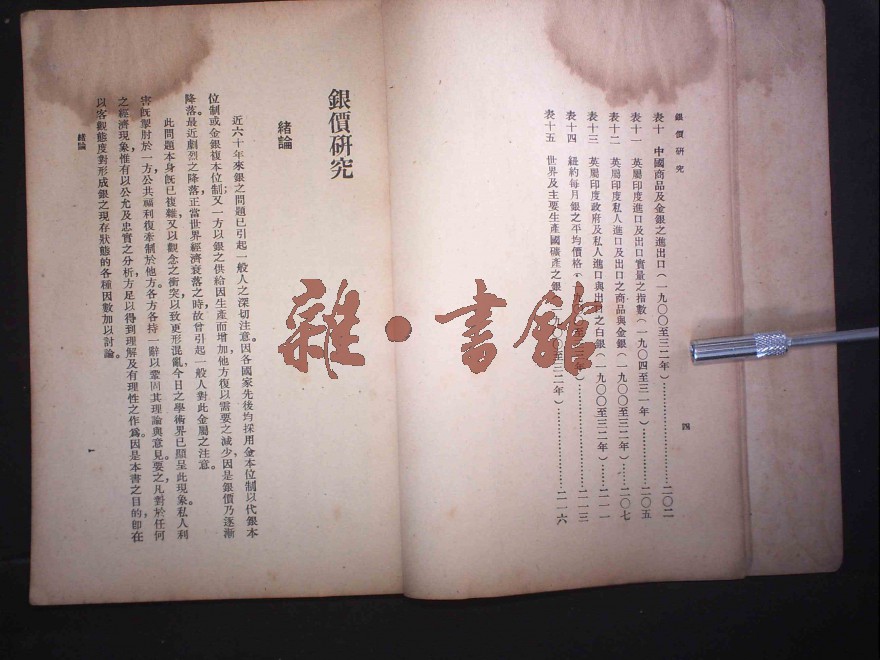 銀價研究
四
表十　中國商品及金銀之進出口(一九〇〇至三二年)……………………二〇二
表十一　英屬印度進口及出口實量之指數(一九〇四至三一年)…………二〇五
表十二　英屬印度私人進口及出口之商品與金銀(一九〇〇至三二年)……二〇七
表十三　英屬印度政府及私人進口與出口之白銀(一九〇〇至三二年)……二一一
表十四　紐約每月銀之平均價格(一九 〇至三三年)……………………二一三
表十五　世界及主要生產國礦產之銀 九〇〇至三二年)……………………二一六
銀價研究
緒論
近六十年來銀之問題已引起一般人之深切注意。因各國家先後均採用金本位制以代銀本
位制或金銀複本位制;又一方以銀之供給因生產而增加,他方復以需要之減少,因是銀價乃逐漸
降落。最近劇烈之降落,正當世界經濟衰落之時,故曾引起一般人對此金屬之注意。
此問題本身旣已複雜,又以觀念之衝突以致更形混亂,今日之學術界已顯呈此現象。私人利
害旣掣肘於一方,公共福利復牽制於他方。各方各持一辭以鞏固其理論與意見。要之,凡對於任何
之經濟現象,惟有以公允及忠實之分析,方足以得到理解及有理性之作爲。因是本書之目的,卽在
以客觀態度對形成銀之現存狀態的各種因數加以討論。
緒論
一
雜·書館